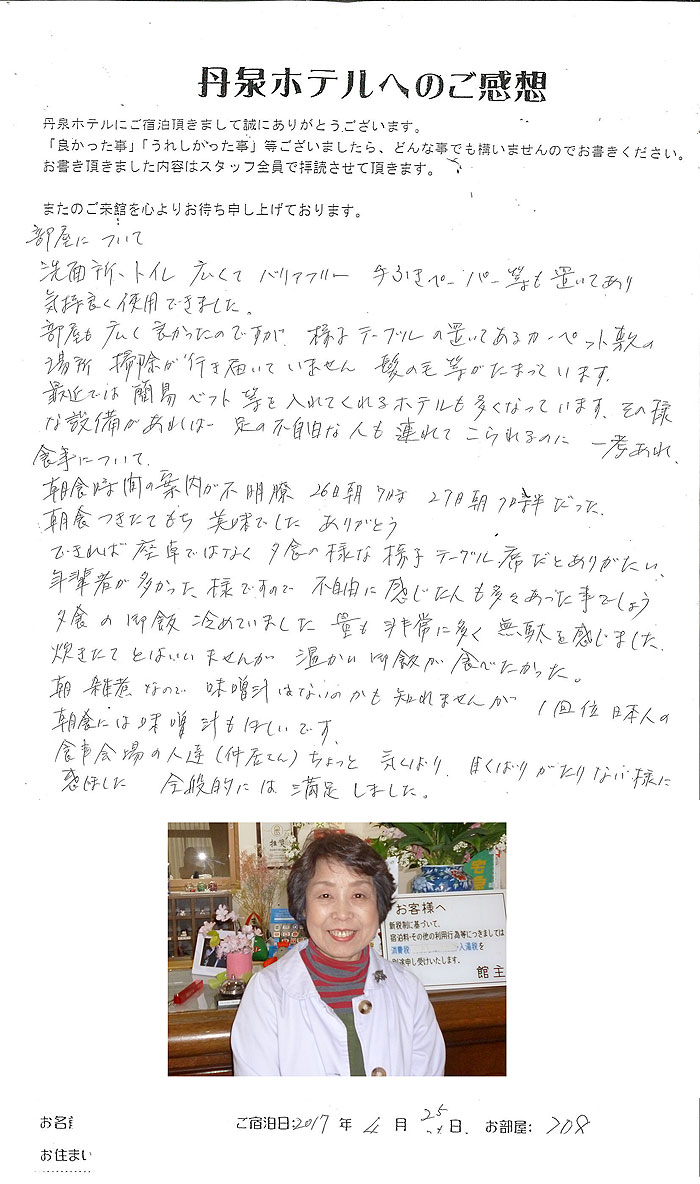 丹泉ホテルへのご感想
丹泉ホテルにご宿泊頂きまして誠にありがとうございます。
「良かった事」「うれしかった事」等ございましたら、どんな事でも構いませんのでお書きください。
お書き頂きました内容はスタッフ全員で拝読させて頂きます。
またのご来館を心よりお待ち申し上げております。
部屋について
洗面所、トイレ 広くて バリアフリー 手ふきペーパー等も置いてあり
気持良く使用できました。
部屋も広く良かったのですが、様子テーブルの置いてあるカーペット敷の
場所 掃除が行き届いていません 髪の毛等がたまっています。
最近では簡易ベット等を入れてくれるホテルも多くなっています、その様
な設備があれば 足の不自由な人も連れてこられるのに 一考あれ、
食事について、
朝食時間の案内が不明瞭 26日朝7時 27日朝7時半だった
朝食つきたてもち 美味でした ありがとう
できれば座卓ではなく夕食の様な様子テーブル席だとありがたい、
年輩者が多かった様ですので 不自由に感じた人も多々あった事でしょう
夕食の御飯 冷めていました 量も非常に多く無駄を感じました、
炊きたてとはいいませんが 温かい御飯が食べたかった。
朝 雑煮なので 味噌汁はないのかも知れませんが 1回位日本人の
朝食には味噌汁もほしいです。
食事会場の人達(仲居さん)ちょっと 気くばり、目くばりがたりない様に
感じました 全般的には満足しました。
推奨
お客様へ
新税制に基づいて、
宿泊料・その他の利用行為等につきましては
消費税 入湯税を
別途申し受けいたします。
館主
お名
ご宿泊日:2017年4月25日、お部屋: 208
お住まい